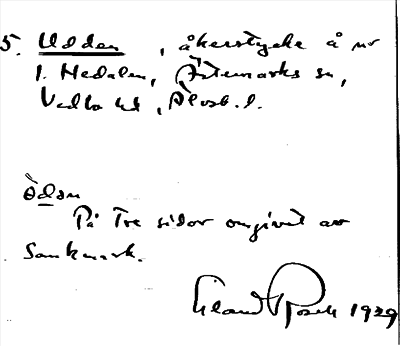 5. Udden, åkerstycke å nr
1. Hedalen, Ärtemarks sn,
Vedbo hd, Älvsb. l.
ò̀dən
På Tre sidor omgivet av
Sankmark.
Erland Rosell 1929